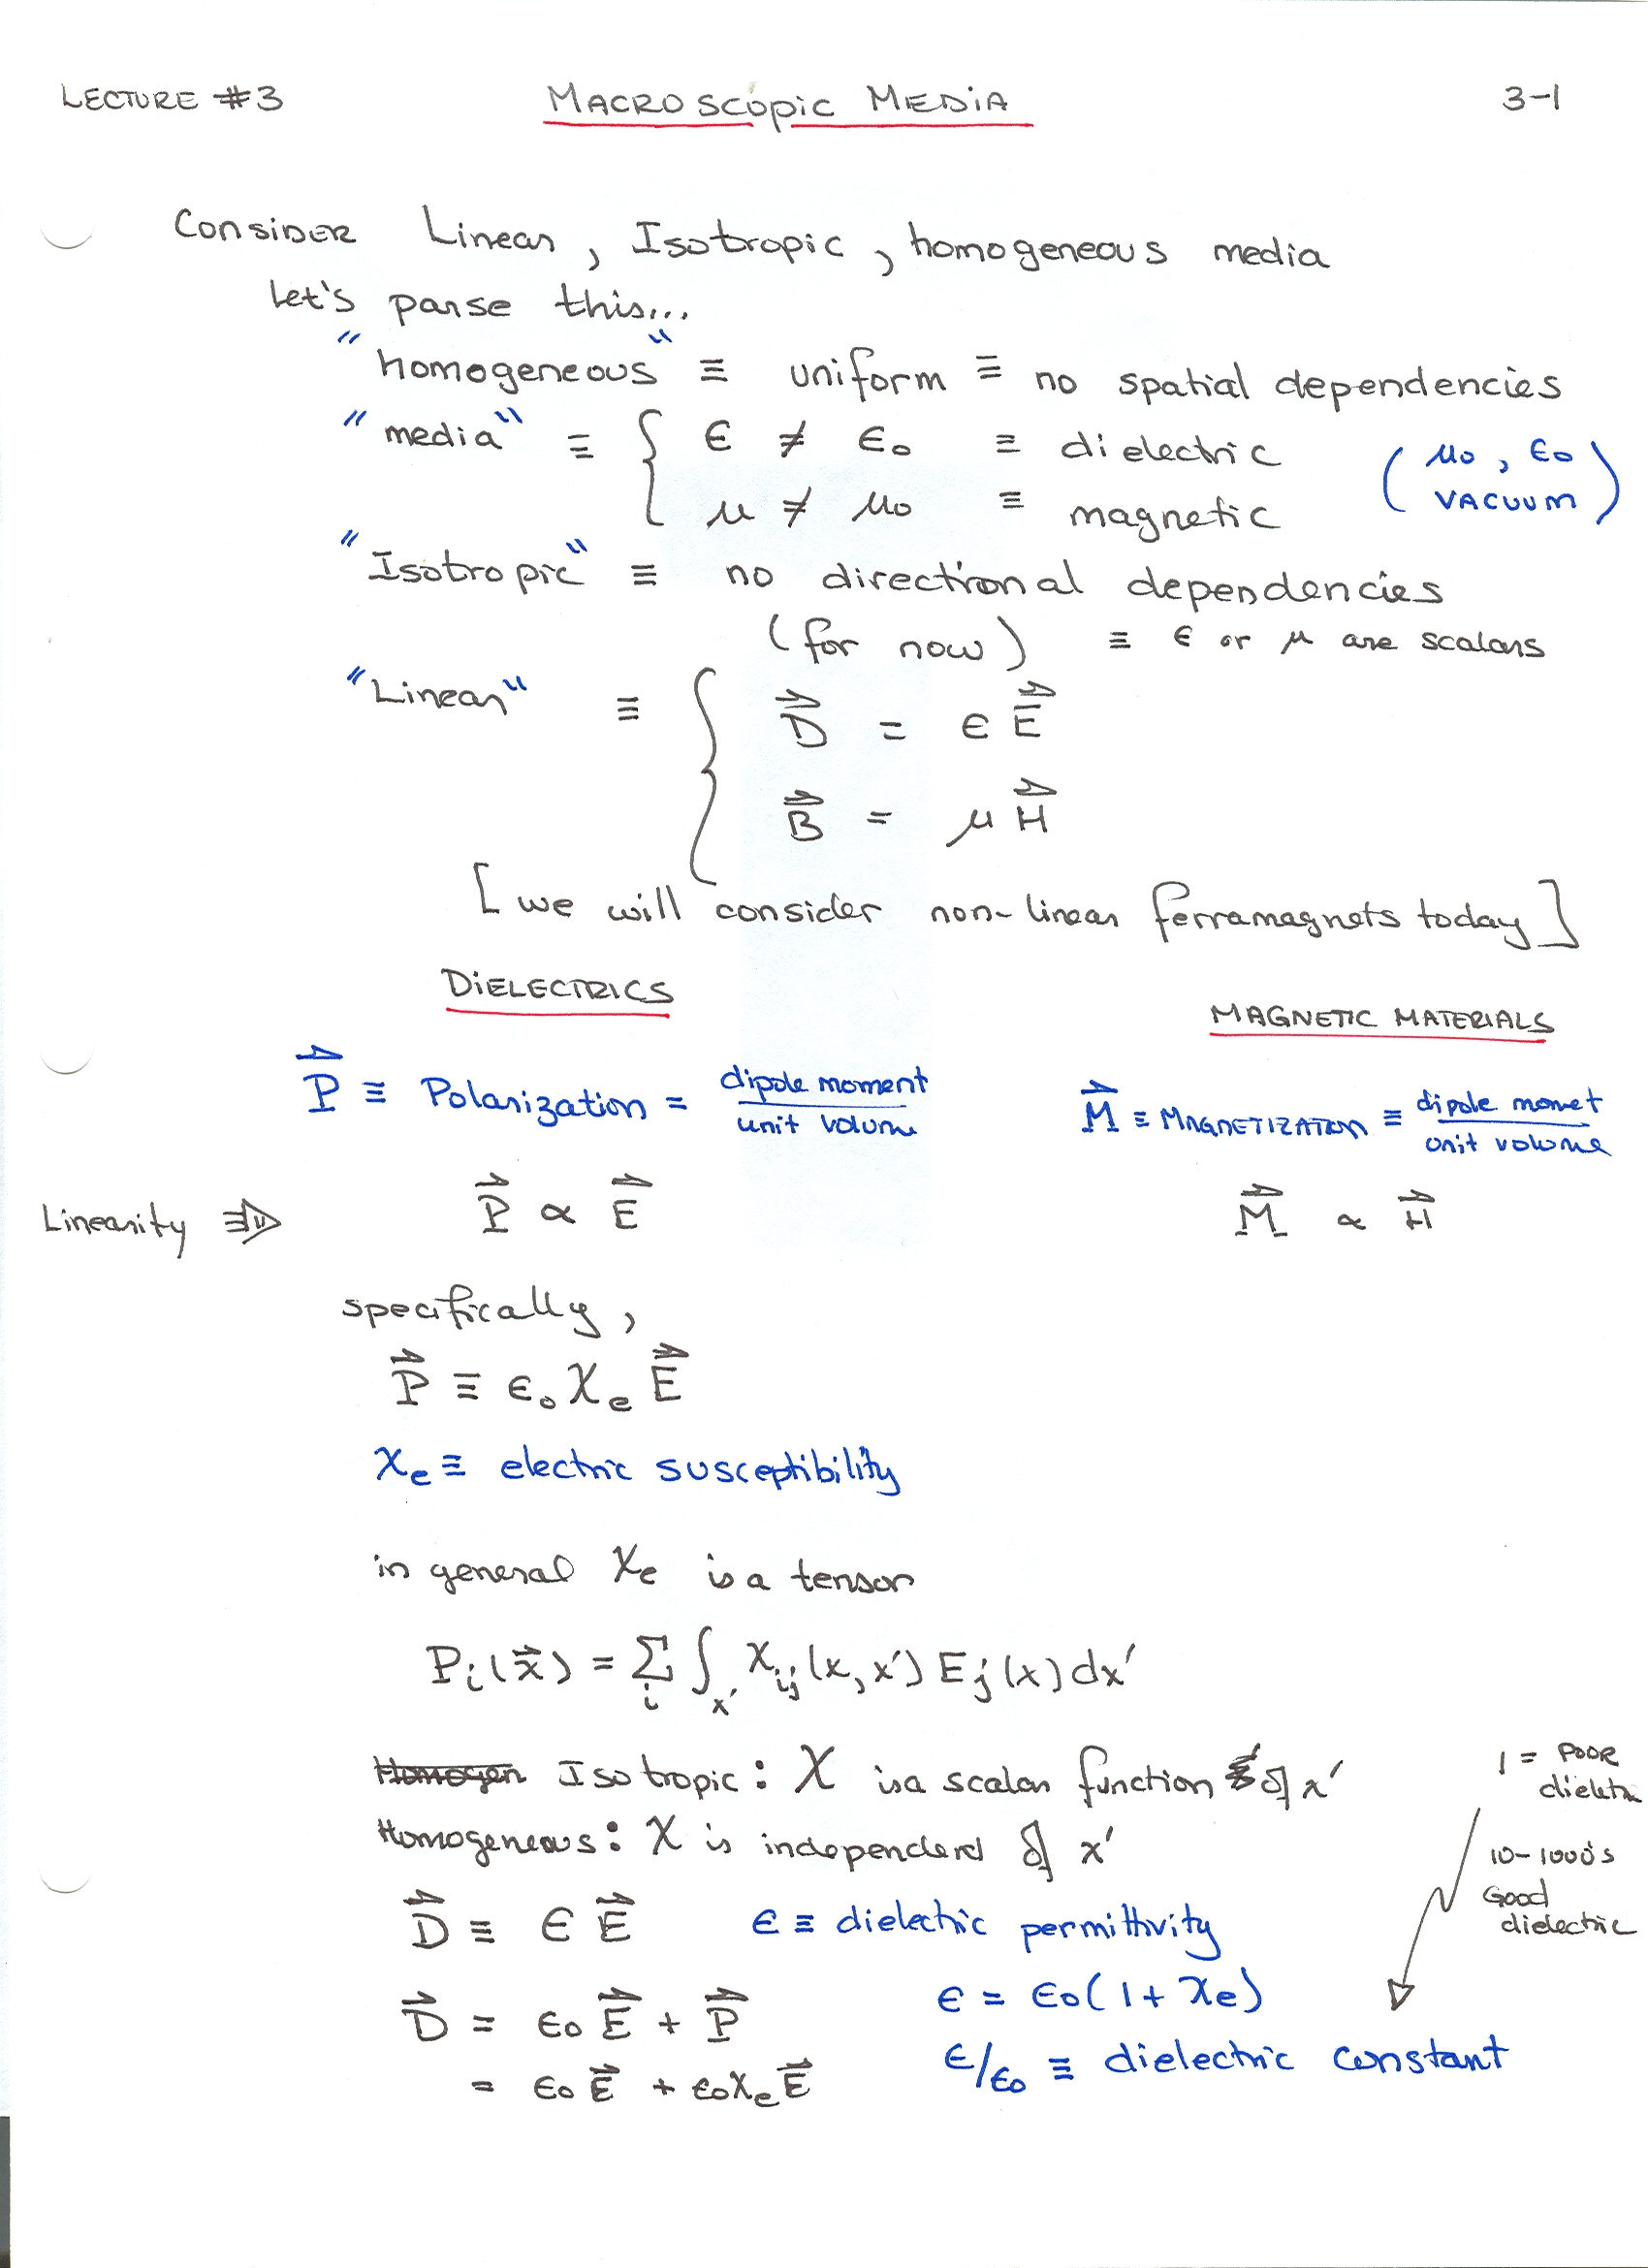 LECTURE #3 MACROSCOPIC MEDIA 3-1
CONSIDER Linear, Isotropic, homogeneous media
Let's parse this...
"homogeneous" ≡ uniform ≡ no spatial dependencies
"media" ≡ { ϵ ≠ ϵ₀ ≡ dielectric (μ₀, ϵ₀
μ ≠ μ₀ ≡ magnetic VACUUM)
"Isotropic" ≡ no directional dependencies
(for now) ≡ ϵ or μ are scalars
"Linear" ≡ { D⃗ = ϵ E⃗
B⃗ = μ H⃗
[we will consider non-linear ferramagnets today]
DIELECTRICS MAGNETIC MATERIALS
P⃗ ≡ Polarization = dipole moment / unit volume
M⃗ ≡ MAGNETIZATION ≡ dipole momet / unit volume
Linearity ⇒ P⃗ ∝ E⃗ M⃗ ∝ H⃗
specifically,
P⃗ ≡ ϵ₀ χₑ E⃗
χₑ ≡ electric susceptibility
in general χₑ is a tensor
Pᵢ(x⃗) = Σᵢ ∫ₓ′ χᵢⱼ(x, x′) Eⱼ(x) dx′
Homogen Isotropic: χ is a scalar function of x′
Homogeneous: χ is independend of x′
1 = POOR
dielectri
10-1000's
Good
dielectric
D⃗ ≡ ϵ E⃗ ϵ ≡ dielectric permittivity
D⃗ = ϵ₀ E⃗ + P⃗ ϵ = ϵ₀(1 + χₑ)
= ϵ₀ E⃗ + ϵ₀χₑ E⃗ ϵ/ϵ₀ ≡ dielectric constant